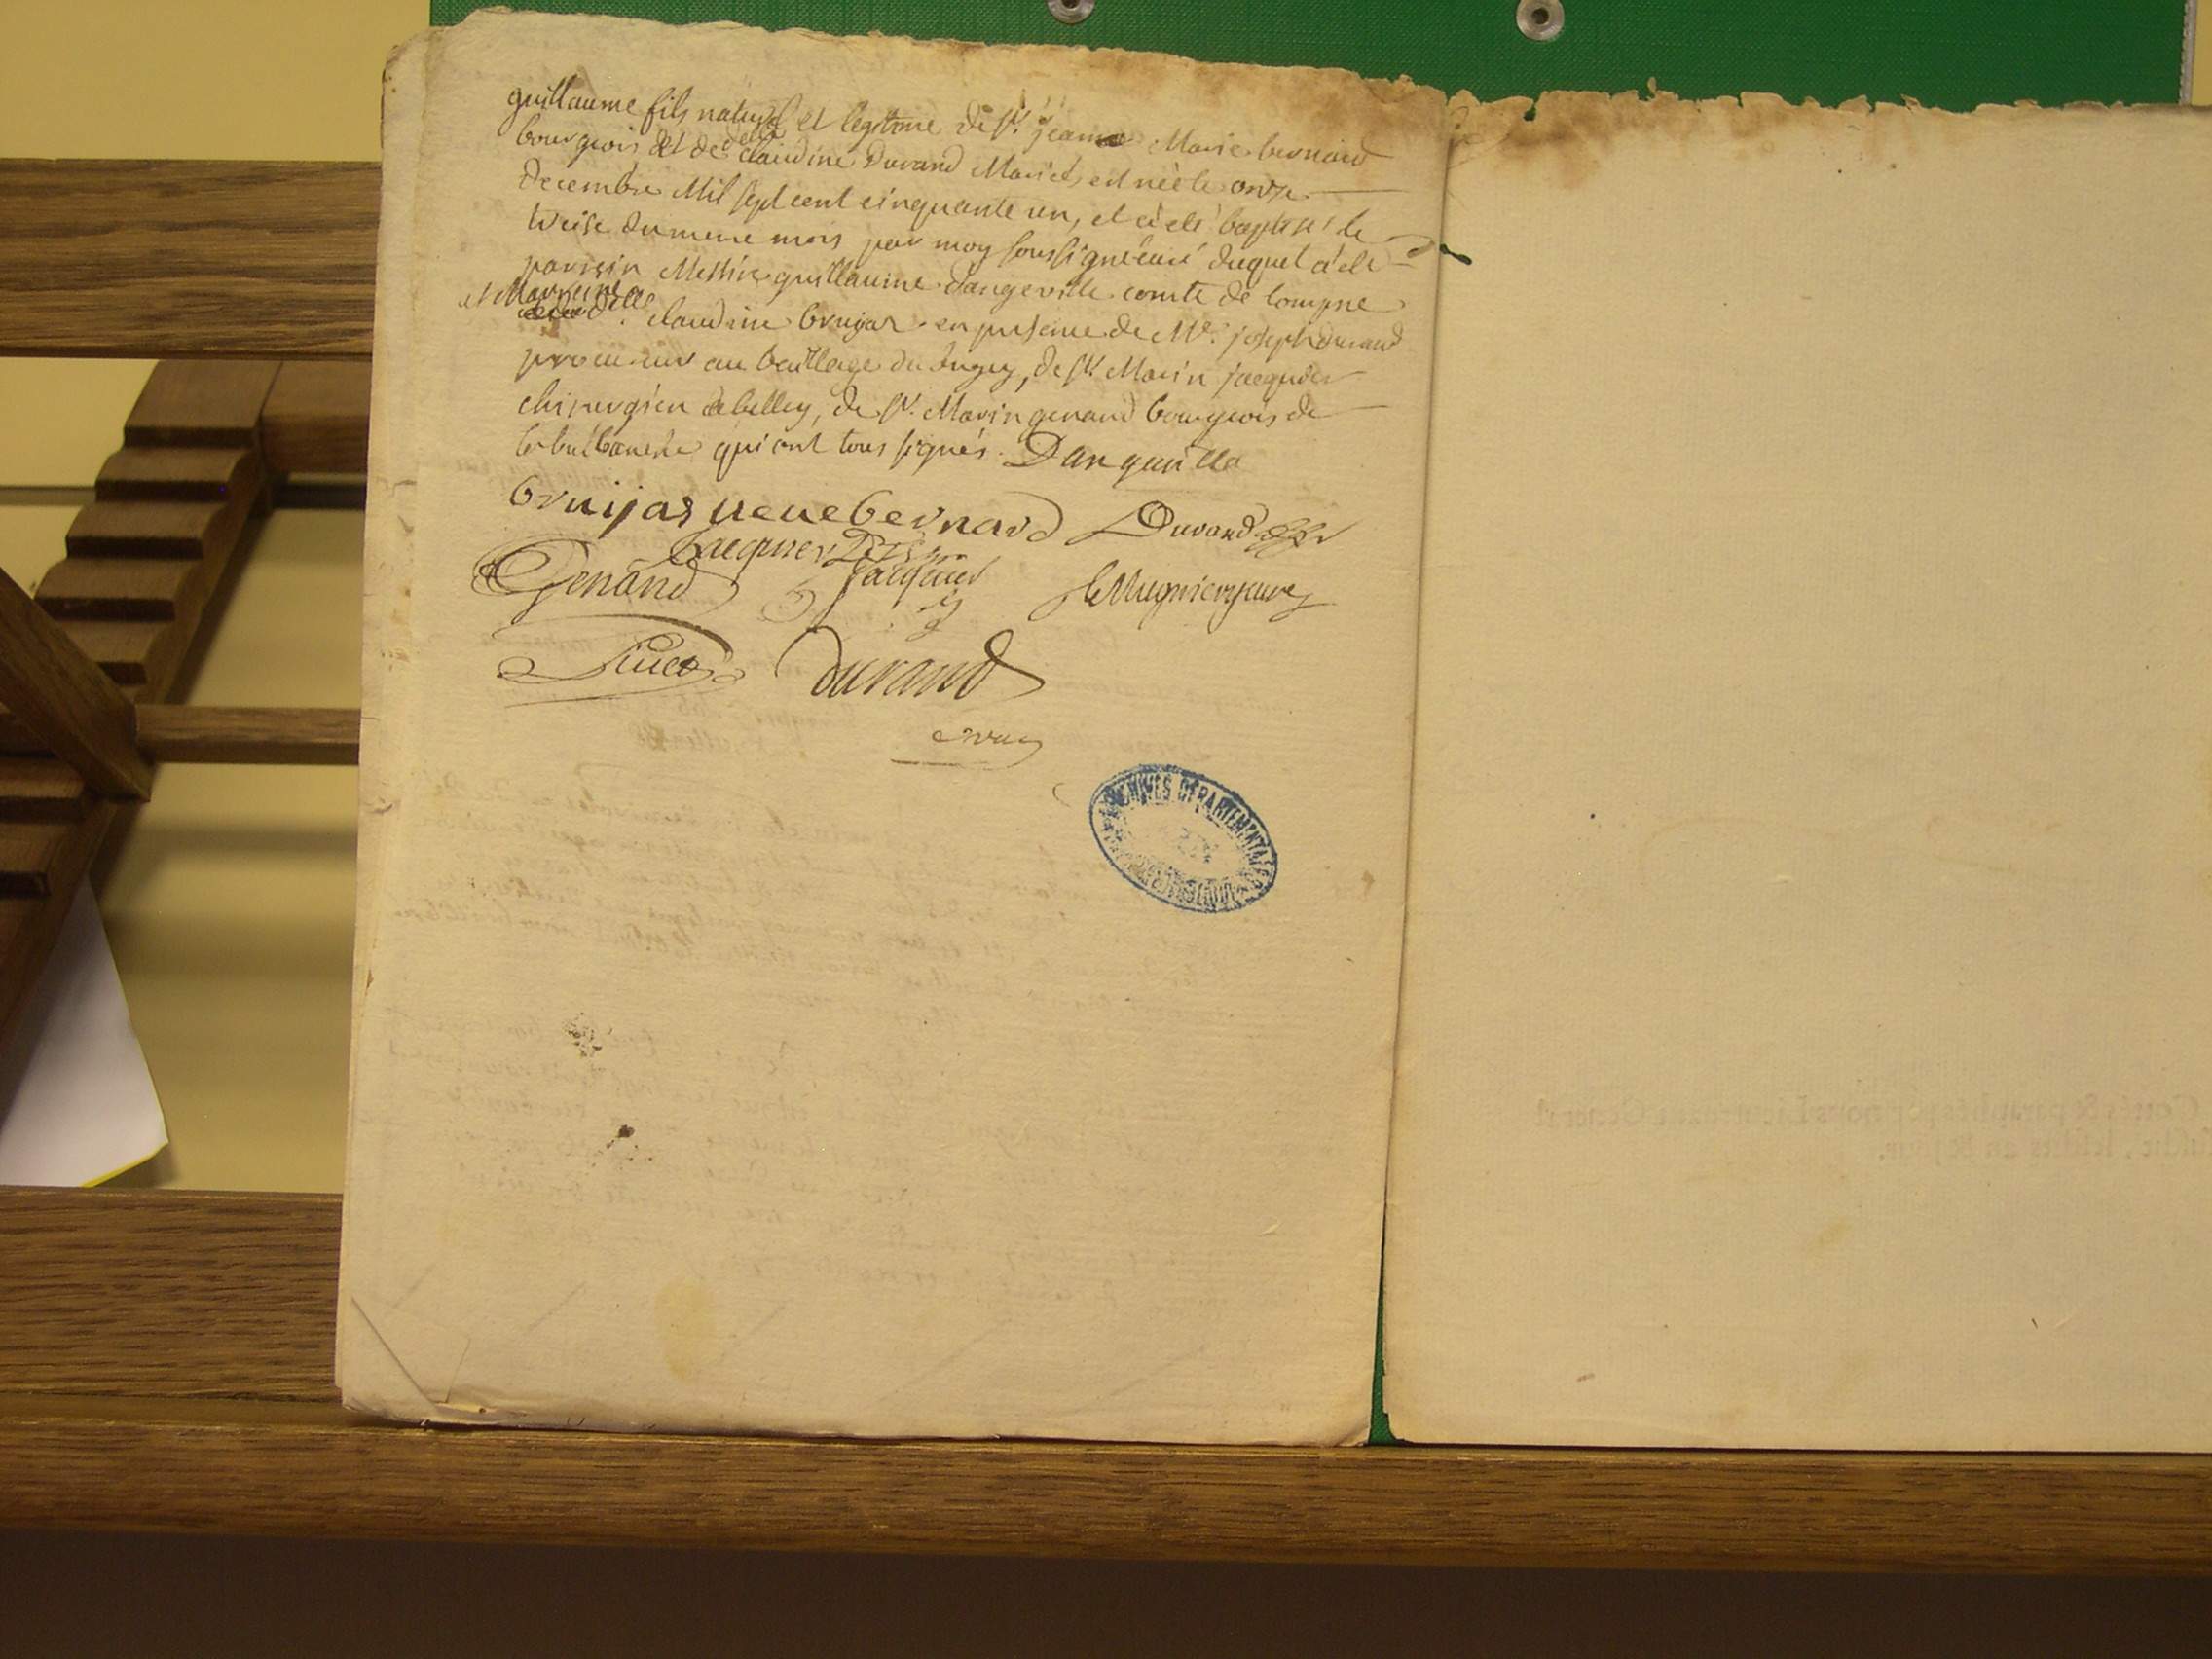 guillaume fils naturel et legitime de Sr. jean Marie bernard
bourgeois et de delle claudine Durand Mariés, est né le onze
decembre Mil sept cent cinquante un, et a eté baptisé le
treise du meme mois par moy soussigné curé duquel a eté
parrein Messire guillaume dangeville comte de lompne
et Marreine delle. claudine brujas en presence de Me. joseph durand
procureur au bailliage du bugey, de Sr. Marin jacquier
chirurgien a belley, de Sr. Marin genand bourgeois de
qui ont tous signés. Dangeville
brujas veuebernard Durand
Jacquier
Genand jacquier
Durand
ARCHIVES DEPARTEMENTALES
Cottés & paraphés par nous Lieutenant General